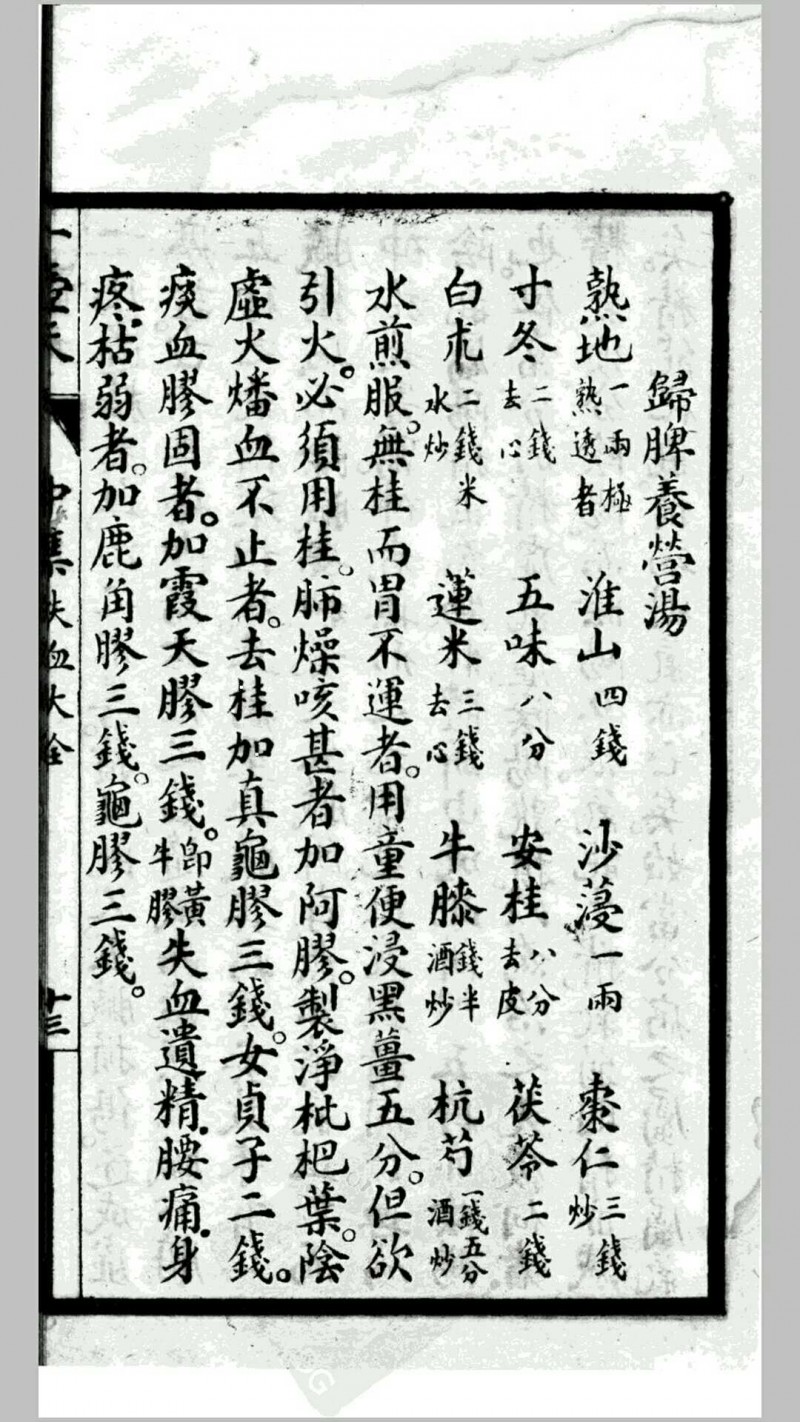 歸脾養營湯
熟地一兩極熟透者 淮山四錢 沙蓡一兩 棗仁三錢炒
寸冬二錢去心 五味八分 安桂八分去皮 茯苓二錢
白朮二錢米水炒 蓮米三錢去心 牛膝錢半酒炒 杭芍一錢五分酒炒
水煎服。無桂而胃不運者。用童便浸黑薑五分。但欲
引火。必須用桂。肺燥咳甚者加阿膠。製淨枇杷葉。陰
虛火燔血不止者。去桂加真龜膠三錢。女貞子二錢。
痰血膠固者。加霞天膠三錢。卽黃牛膠失血遺精。腰痛。身
疼。枯弱者。加鹿角膠三錢。龜膠三錢。
中集 失血大全 十三